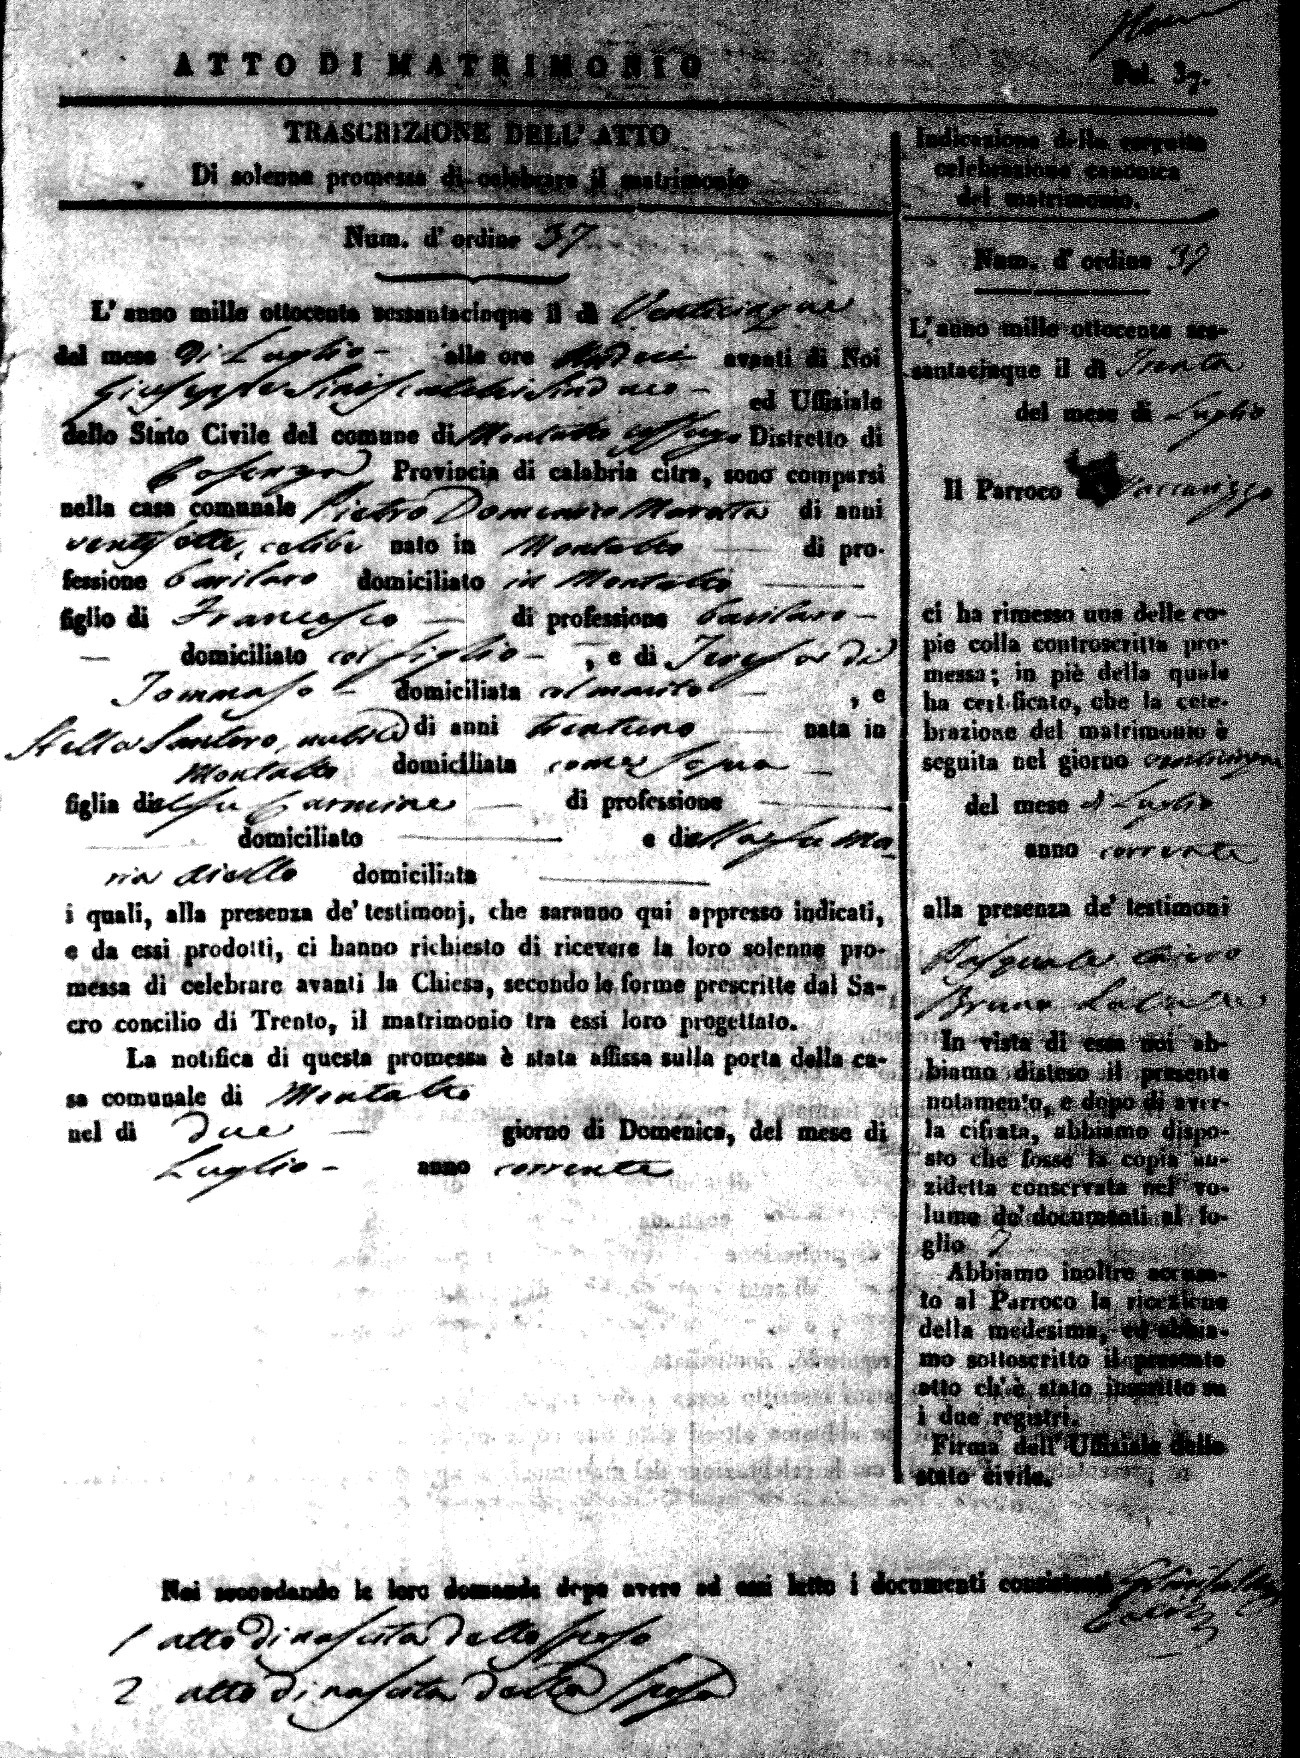 ATTO DI MATRIMONIO
Fol. 37.
TRASCRIZIONE DELL' ATTO
Di solenne promessa di celebrare il matrimonio
Num. d' ordine 37
L' anno mille ottocento sessantacinque il dì Venticinque
del mese di Luglio alle ore avanti di Noi
Giuseppe Siniscalchi Sindaco ed Uffiziale
dello Stato Civile del comune di Montalto Uffugo Distretto di
Cosenza Provincia di calabria citra, sono comparsi
nella casa comunale Pietro Domenico Maratta di anni
ventisette, celibe nato in Montalto di pro-
fessione barilaro domiciliato in Montalto
figlio di Francesco di professione barilaro
domiciliato col figlio , e di Teresa di
Tommaso domiciliata col marito , e
Stella Santoro, nubile di anni trentuno nata in
Montalto domiciliata come sopra
figlia del fu Carmine di professione
domiciliato e della fu Ma-
ria Aiello domiciliata
i quali, alla presenza de' testimonj, che saranno qui appresso indicati,
e da essi prodotti, ci hanno richiesto di ricevere la loro solenne pro-
messa di celebrare avanti la Chiesa, secondo le forme prescritte dal Sa-
cro concilio di Trento, il matrimonio tra essi loro progettato.
La notifica di questa promessa è stata affissa sulla porta della ca-
sa comunale di Montalto
nel dì due giorno di Domenica, del mese di
Luglio anno corrente
Indicazione della seguita
celebrazione canonica
del matrimonio.
Num. d' ordine 37
L' anno mille ottocento ses-
santacinque il dì Trenta
del mese di Luglio
Il Parroco di Vaccarizzo
ci ha rimesso una delle co-
pie colla controscritta pro-
messa; in piè della quale
ha certificato, che la cele-
brazione del matrimonio è
seguita nel giorno
del mese di Luglio
anno corrente
alla presenza de' testimoni
Pasquale
Bruno
In vista di essa noi ab-
biamo disteso il presente
notamento, e dopo di aver-
la cifrata, abbiamo dispo-
sto che fosse la copia an-
zidetta conservata nel vo-
lume de' documenti al fo-
glio 7
Abbiamo inoltre accusa-
to al Parroco la ricezione
della medesima, ed abbia-
mo sottoscritto il presente
atto ch' è stato inscritto su
i due registri.
Firma dell' Uffiziale dello
stato civile.
Noi secondando le loro domande dopo avere ad essi letto i documenti consistenti
1 atto di nascita dello sposo
2 atto di nascita della sposa